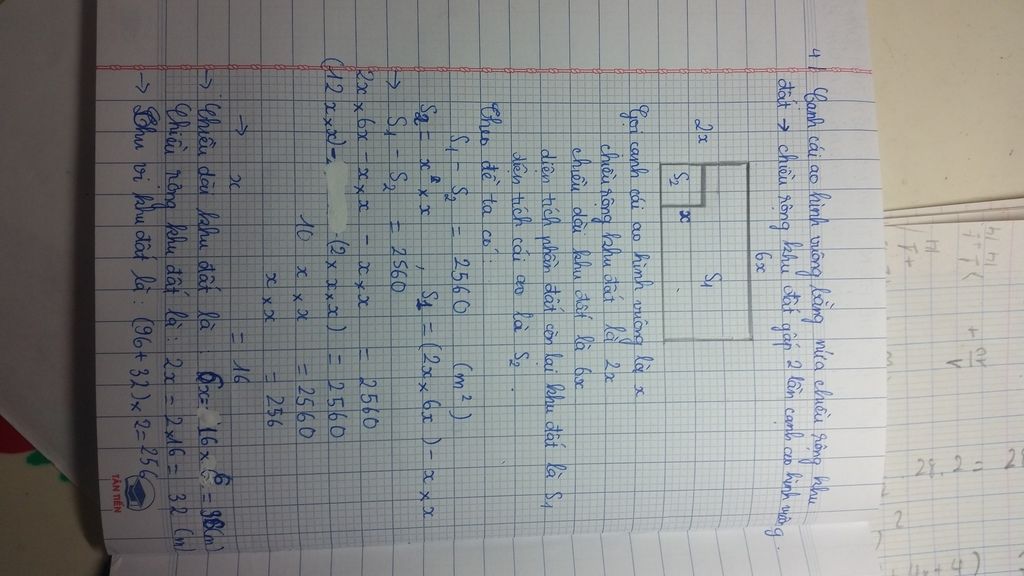 4)
Cạnh cái ao hình vuông bằng nửa chiều rộng khu
đất → chiều rộng khu đất gấp 2 lần cạnh ao hình vuông.
6x
2x
S2
x
S1
Gọi cạnh cái ao hình vuông là x
chiều rộng khu đất là 2x
chiều dài khu đất là 6x
diện tích phần đất còn lại khu đất là S1
diện tích cái ao là S2.
Theo đề ta có:
S1 - S2 = 2560 (m²)
S2 = x × x, S1 = (2x × 6x) - x × x
→ S1 - S2 = 2560
2x × 6x - x × x - x × x = 2560
(12 x × x) - (2 × x × x) = 2560
10 x × x = 2560
x × x = 256
→ x = 16
→ Chiều dài khu đất là: 6x = 16 × 6 = 96 (m)
Chiều rộng khu đất là: 2x = 2×16 = 32 (m)
→ Chu vi khu đất là: (96+32) × 2 = 256
TÂN TIẾN
28.2 = 28